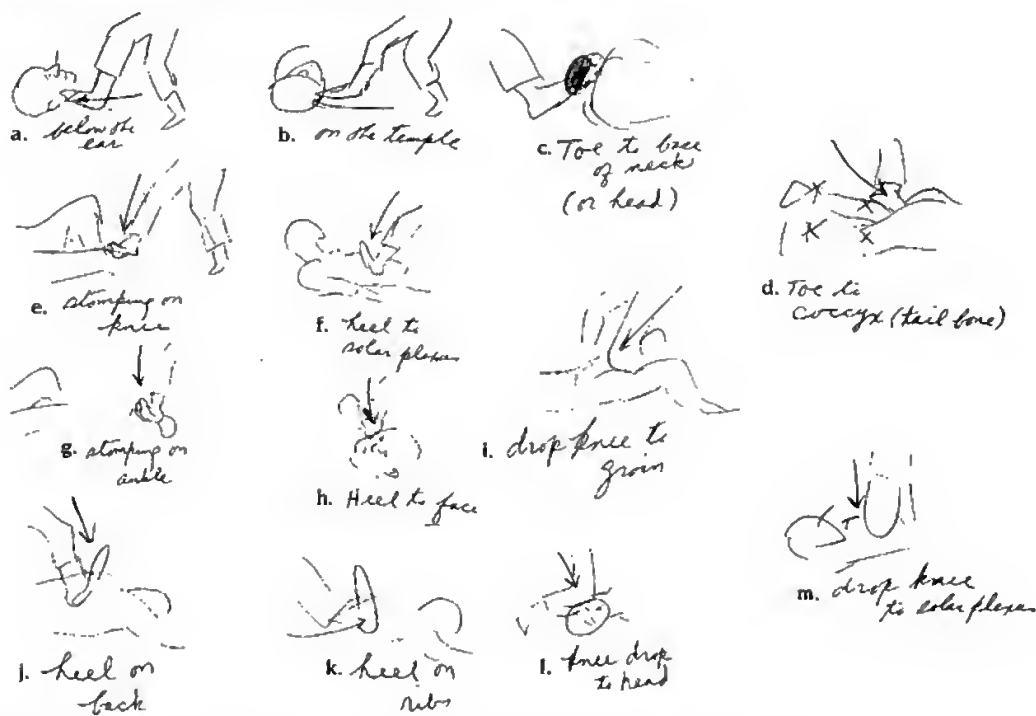 a. below the
ear
b. on the temple
c. Toe to base
of neck
(or head)
d. Toe to
coccyx (tail bone)
e. stomping on
knee
f. heel to
solar plexus
g. stomping on
ankle
h. Heel to face
i. drop knee to
groin
j. heel on
back
k. heel on
ribs
l. knee drop
to head
m. drop knee
to solar plexus